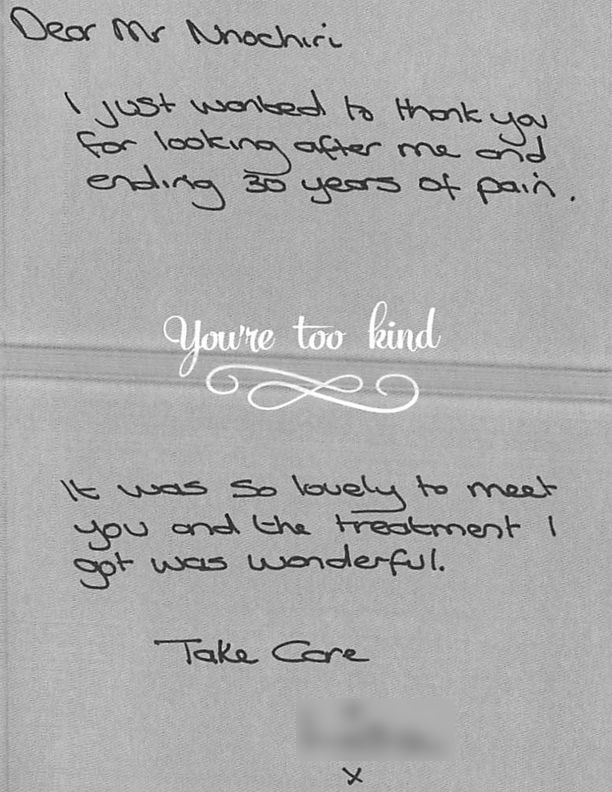 Dear Mr Nnochiri
I just wanted to thank you
for looking after me and
ending 30 years of pain.
You're too kind
It was so lovely to meet
you and the treatment I
got was wonderful.
Take Care
x